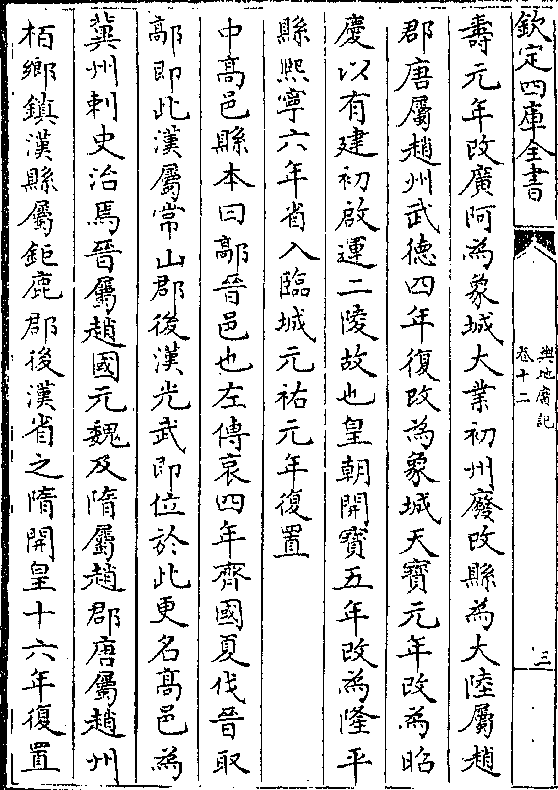 欽定四庫全書
輿地廣記
卷十二
三
壽元年改廣阿為象城大業初州廢改縣為大陸屬趙
郡唐屬趙州武德四年復改為象城天寶元年改為昭
慶以有建初啟運二陵故也皇朝開寶五年改為隆平
縣熙寧六年省入臨城元祐元年復置
中髙邑縣本曰鄗晉邑也左傳哀四年齊國夏伐晉取
鄗即此漢屬常山郡後漢光武即位於此更名髙邑為
冀州刺史治焉晉屬趙國元魏及隋屬趙郡唐屬趙州
栢鄉鎮漢縣屬鉅鹿郡後漢省之隋開皇十六年復置